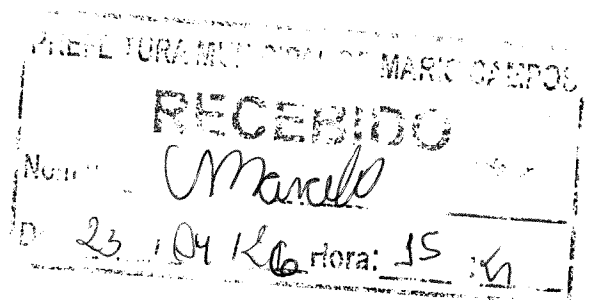 PREFEITURA MUNICIPAL DE MARK CAMPOS
RECEBIDO
Nome: Marcelo
D 23 / 04 / 26 Hora: 15 :